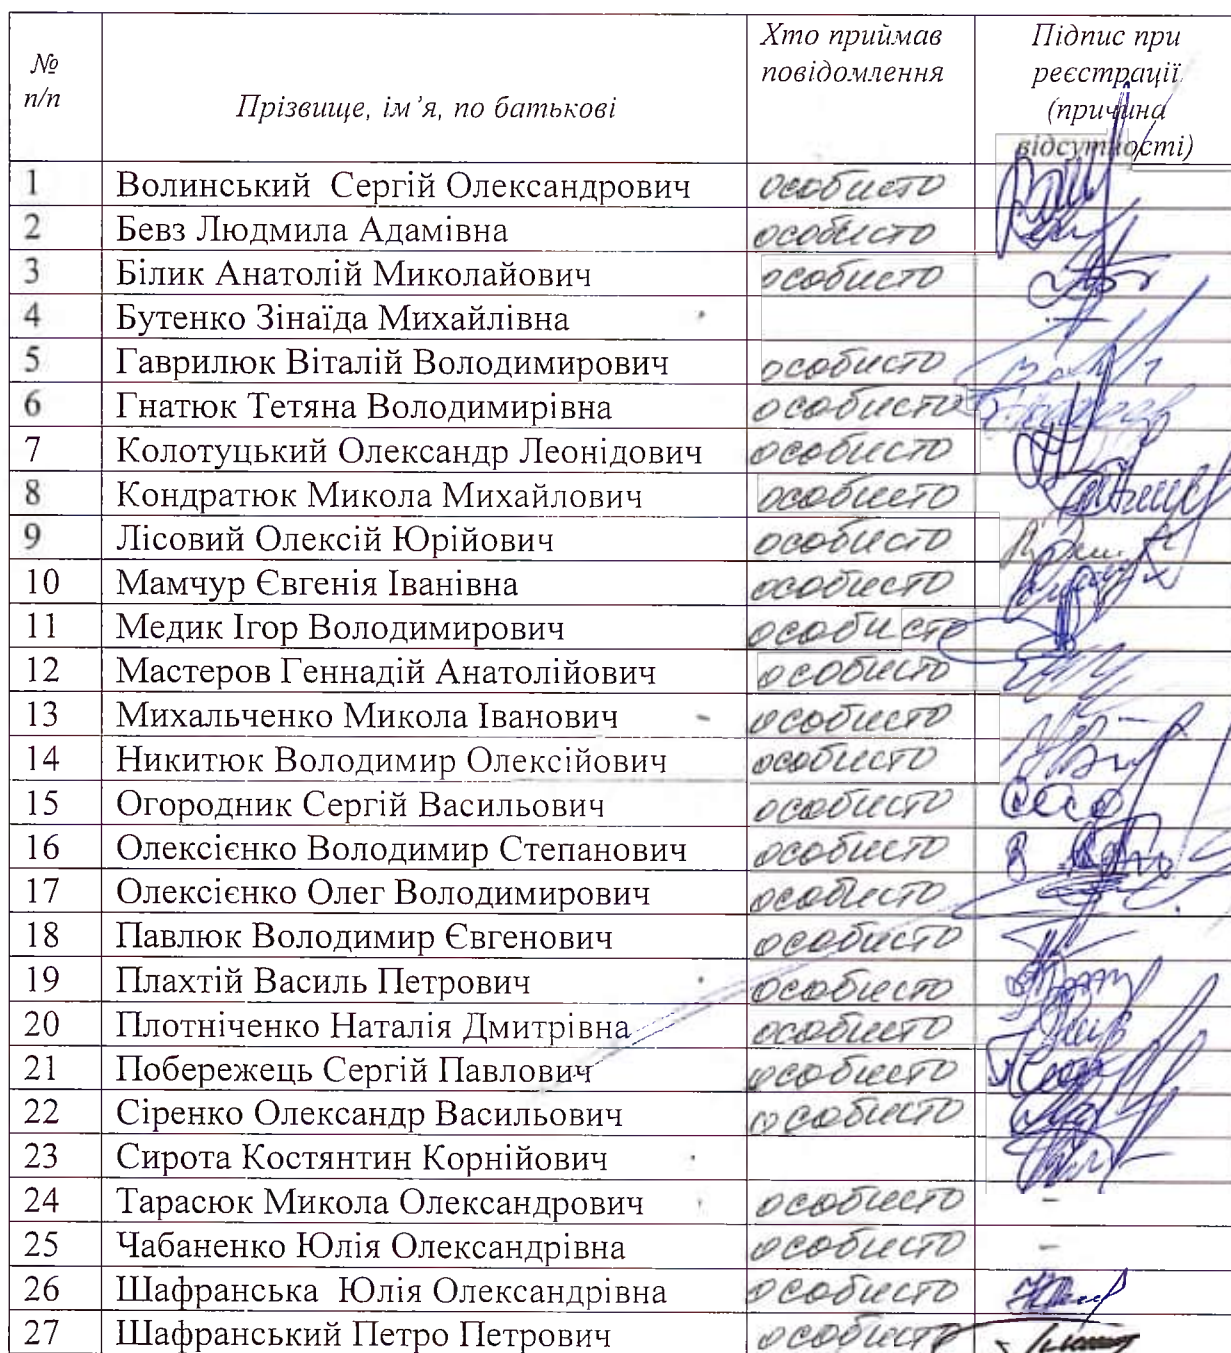 № п/п Прізвище, ім’я, по батькові Хто приймав повідомлення Підпис при реєстрації (причина відсутності)
1 Волинський Сергій Олександрович особисто
2 Бевз Людмила Адамівна особисто
3 Білик Анатолій Миколайович особисто
4 Бутенко Зінаїда Михайлівна
5 Гаврилюк Віталій Володимирович особисто
6 Гнатюк Тетяна Володимирівна особисто
7 Колотуцький Олександр Леонідович особисто
8 Кондратюк Микола Михайлович особисто
9 Лісовий Олексій Юрійович особисто
10 Мамчур Євгенія Іванівна особисто
11 Медик Ігор Володимирович особисто
12 Мастеров Геннадій Анатолійович особисто
13 Михальченко Микола Іванович особисто
14 Никитюк Володимир Олексійович особисто
15 Огородник Сергій Васильович особисто
16 Олексієнко Володимир Степанович особисто
17 Олексієнко Олег Володимирович особисто
18 Павлюк Володимир Євгенович особисто
19 Плахтій Василь Петрович особисто
20 Плотніченко Наталія Дмитрівна особисто
21 Побережець Сергій Павлович особисто
22 Сіренко Олександр Васильович особисто
23 Сирота Костянтин Корнійович
24 Тарасюк Микола Олександрович особисто -
25 Чабаненко Юлія Олександрівна особисто -
26 Шафранська Юлія Олександрівна особисто
27 Шафранський Петро Петрович особисто